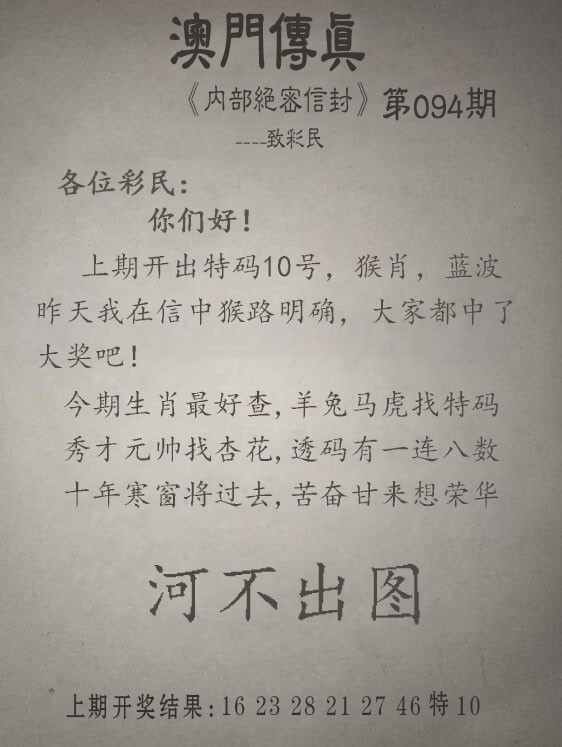 澳門傳眞
《内部絕密信封》第094期
----致彩民
各位彩民:
你们好!
上期开出特码10号，猴肖，蓝波
昨天我在信中猴路明确，大家都中了
大奖吧!
今期生肖最好查,羊兔马虎找特码
秀才元帅找杏花,透码有一连八数
十年寒窗将过去,苦奋甘来想荣华
河不出图
上期开奖结果:16 23 28 21 27 46特10